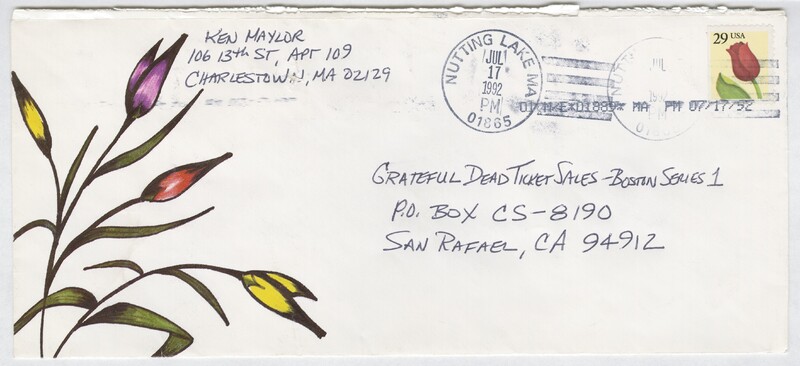 Ken Maylor
106 13th St, Apt 109
Charlestown, MA 02129
NUTTING LAKE MA
JUL
17
1992
PM
01865
29 USA
MA PM 07/17/92
Grateful Dead Ticket Sales - Boston Series 1
P.O. Box CS-8190
San Rafael, CA 94912